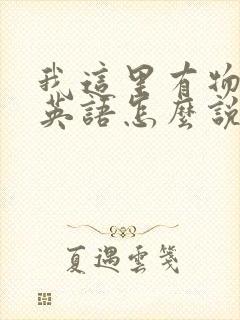 我這里有物
英語怎麼說
夏遇雲箋